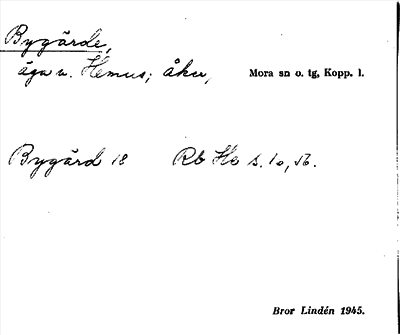 Bygärde,
äga u. Hemus; åker, Mora sn o. tg, Kopp. l.
Bygärd 18 Rb He s. 10, 56.
Bror Lindén 1945.